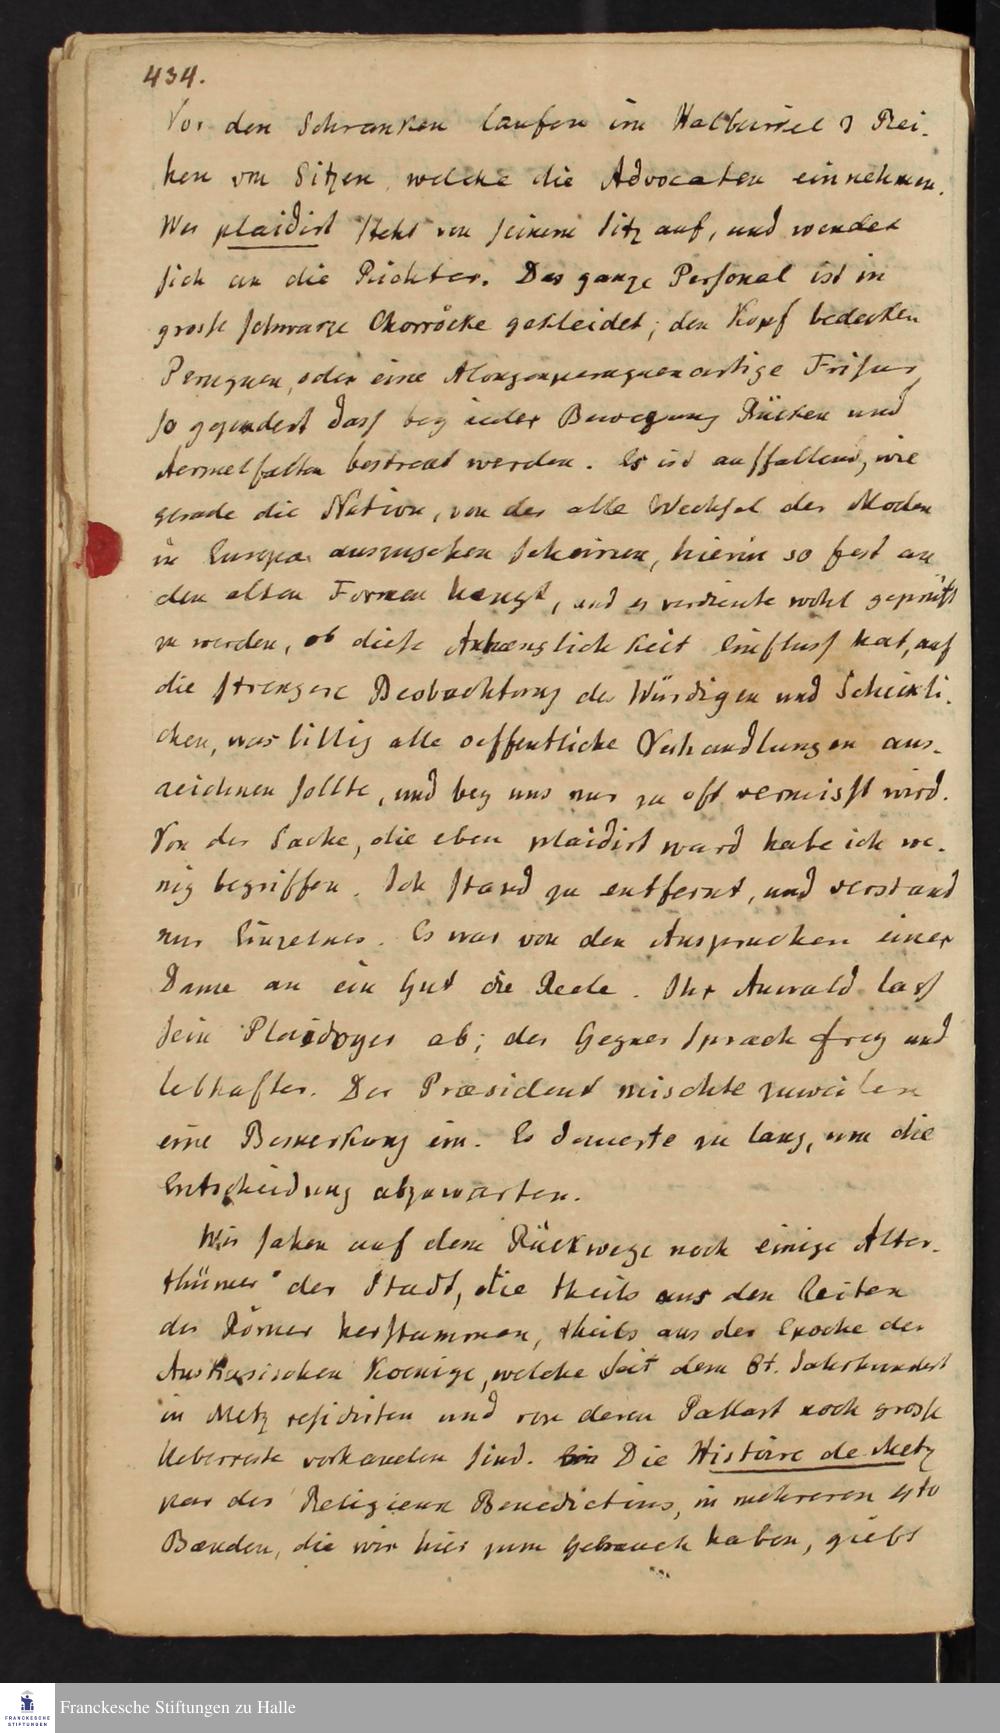 434.
Vor den Schranken laufen im Halbcirkel 3 Rei-
hen von Sitzen, welche die Advocaten einnehmen.
Wer plaidirt steht von seinem Sitz auf, und wendet
sich an die Richter. Das ganze Personal ist in
grosse schwarze Chorröcke gekleidet; den Kopf bedecken
Peruquen, oder eine Alongenperuquenartige Frisur,
so gepudert dass bey ieder Bewegung Rücken und
Aermelfalten bestreut werden. Es ist auffallend, wie
gerade die Nation, von der alle Wechsel der Moden
in Europa auszugehen scheinen, hierin so fest an
den alten Formen hængt, und es verdiente wohl geprüft
zu werden, ob diese Anhænglichkeit Einfluss hat, auf
die strengere Beobachtung des Würdigen und Schickli-
chen, was billig alle oeffentliche Verhandlungen aus-
zeichnen sollte, und bey uns nur zu oft vermisst wird.
Von der Sache, die eben plaidirt ward habe ich we-
nig begriffen. Ich stand zu entfernt, und verstand
nur Einzelnes. Es war von den Ansprüchen einer
Dame an ein Gut die Rede. Ihr Anwald lass
sein Plaidoyer ab; der Gegner sprach frey und
lebhafter. Der Præsident mischte zuweilen
eine Bemerkung ein. Es dauerte zu lang, um die
Entscheidung abzuwarten.
Wir sahen auf dem Rückwege noch einige Alter-
thümer der Stadt, die theils aus den Zeiten
der Römer herstammen, theils aus der Epoche der
Austrasischen Koenige, welche seit dem 6t. Jahrhundert
in Metz residirten und von deren Pallast noch grosse
Ueberreste vorhanden sind. Die Histoire de Metz
par des Religieux Benedictins, in mehreren 4to
Bænden, die wir hier zum Gebrauch haben, giebt
Franckesche Stiftungen zu Halle
FRANCKESCHE
STIFTUNGEN